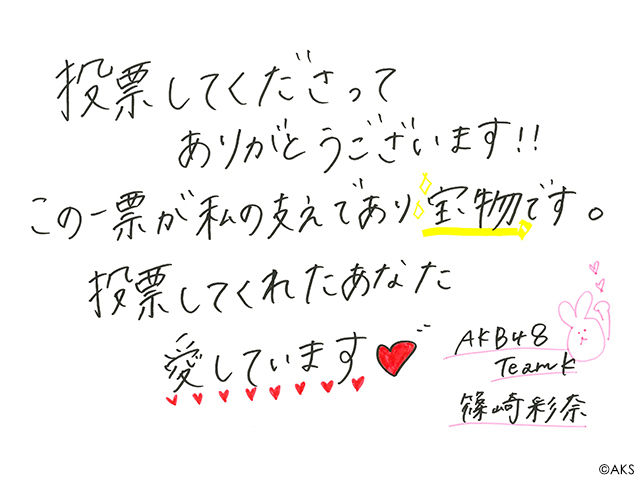 投票してくださって
ありがとうございます!!
この一票が私の支えであり宝物です。
投票してくれたあなた
愛しています
AKB48
TeamK
篠崎彩奈
©AKS